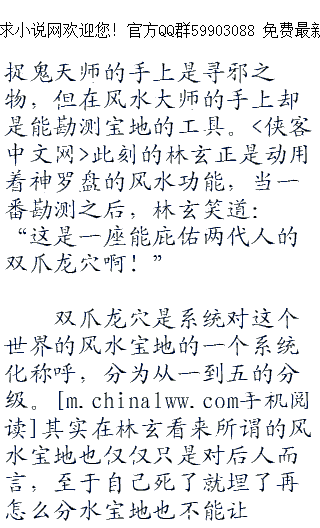 求小说网欢迎您！官方QQ群59903088 免费最新
捉鬼天师的手上是寻邪之
物，但在风水大师的手上却
是能勘测宝地的工具。<侠客
中文网>此刻的林玄正是动用
着神罗盘的风水功能，当一
番勘测之后，林玄笑道：
“这是一座能庇佑两代人的
双爪龙穴啊！”
双爪龙穴是系统对这个
世界的风水宝地的一个系统
化称呼，分为从一到五的分
级。[m.chinalww.com手机阅
读]其实在林玄看来所谓的风
水宝地也仅仅只是对后人而
言，至于自己死了就埋了再
怎么分水宝地也不能让